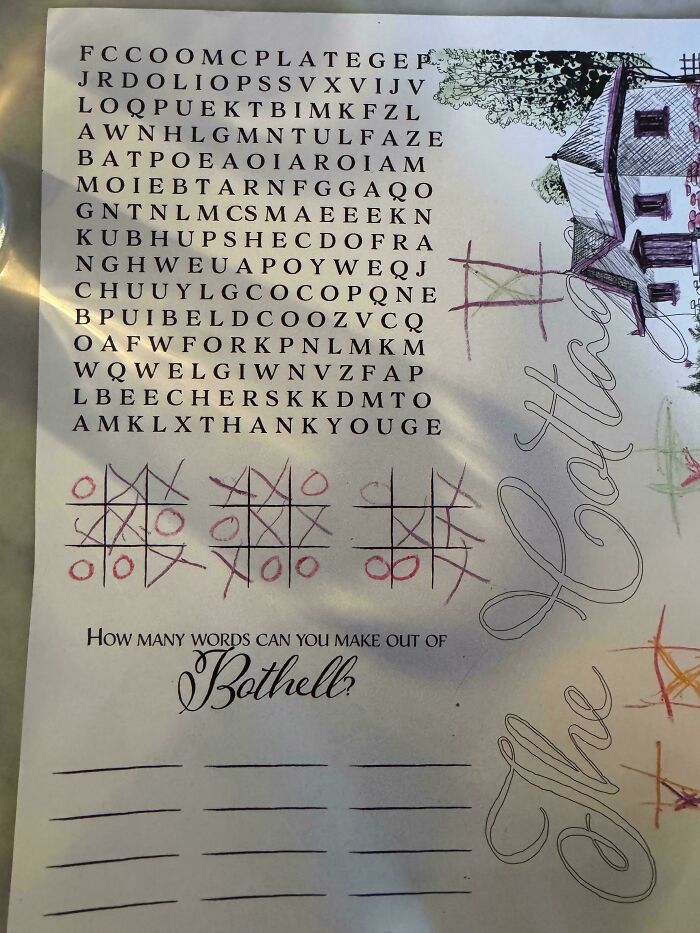 FCCOOMCPLATEGEP
JRDOLIOPSSVXVIJV
LOQPUEKTBIMKFZL
AWNHLGMNTULFAZE
BATPOEAOIAROIAM
MOIEBTARNFGGAQO
GNTNLMCSMAEEEKN
KUBHUPSHECDOFRA
NGHWEUAPOYWEQJ
CHUUYLGCOCOPQNE
BPUIBELDCOOZVCQ
OAFWFORKPNLMKM
WQWELGIWNVZFAP
LBEECHERSKKDMTO
AMKLXTHANKYOUGE
O X X X X O O X
X X O O X X X X
O O X X O O O O X
HOW MANY WORDS CAN YOU MAKE OUT OF
Bothell?
The Cottage